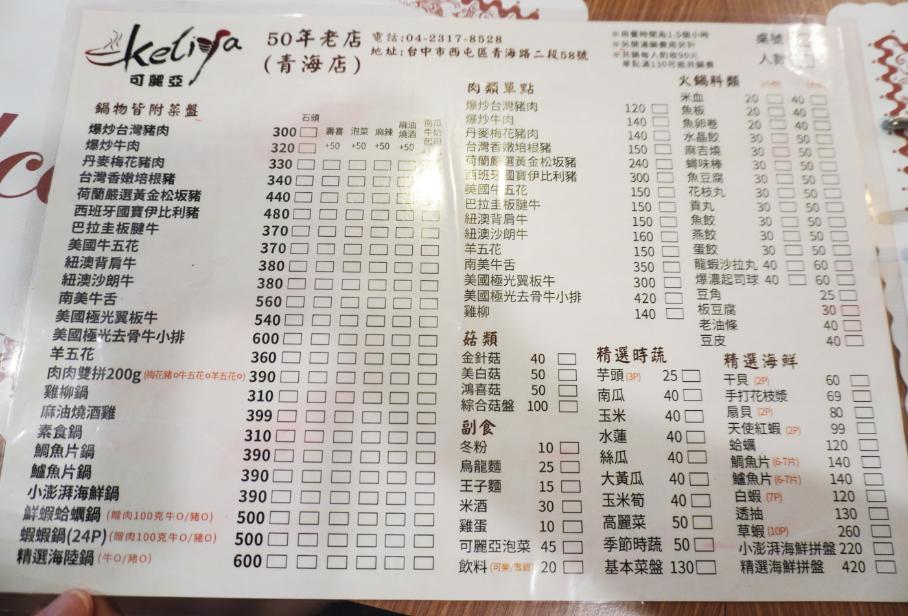 keliya
可麗亞
50年老店
(青海店)
電話:04-2317-8528
地址:台中市西屯區青海路二段58號
※用餐時間為1.5個小時
※另開湯鍋費用另計
※共鍋每人酌收90元
單點滿130可抵共鍋費
桌號
人數
鍋物皆附菜盤
石頭 壽喜 泡菜 麻辣 麻油燒酒 南瓜牛奶起司
+50 +50 +50 +50
爆炒台灣豬肉 300
爆炒牛肉 320
丹麥梅花豬肉 330
台灣香嫩培根豬 340
荷蘭嚴選黃金松坂豬 440
西班牙國寶伊比利豬 480
巴拉圭板腱牛 370
美國牛五花 370
紐澳背肩牛 380
紐澳沙朗牛 380
南美牛舌 560
美國極光翼板牛 540
美國極光去骨牛小排 600
羊五花 360
肉肉雙拼200g(梅花豬o牛五花o羊五花o) 390
雞柳鍋 310
麻油燒酒雞 399
素食鍋 310
鯛魚片鍋 390
鱸魚片鍋 390
小澎湃海鮮鍋 390
鮮蝦蛤蠣鍋(贈肉100克牛O/豬O) 500
蝦蝦鍋(24P)(贈肉100克牛O/豬O) 500
精選海陸鍋(牛O/豬O) 600
肉類單點
爆炒台灣豬肉 120
爆炒牛肉 140
丹麥梅花豬肉 140
台灣香嫩培根豬 150
荷蘭嚴選黃金松坂豬 240
西班牙國寶伊比利豬 300
美國牛五花 150
巴拉圭板腱牛 150
紐澳背肩牛 150
紐澳沙朗牛 160
羊五花 150
南美牛舌 350
美國極光翼板牛 300
美國極光去骨牛小排 420
雞柳 140
火鍋料類
米血 20 40
魚板 20 40
魚卵卷 20 40
水晶餃 30 50
麻吉燒 30 50
蟳味棒 30 50
魚豆腐 30 50
花枝丸 30 50
貢丸 30 50
魚餃 30 50
燕餃 30 50
蛋餃 30 50
龍蝦沙拉丸 40 60
爆濃起司球 40 60
豆角 25
板豆腐 30
老油條 40
豆皮 40
菇類
金針菇 40
美白菇 50
鴻喜菇 50
綜合菇盤 100
副食
冬粉 10
烏龍麵 25
王子麵 15
米酒 30
雞蛋 10
可麗亞泡菜 45
飲料(可樂/雪碧) 20
精選時蔬
芋頭(3P) 25
南瓜 40
玉米 40
水蓮 40
絲瓜 40
大黃瓜 40
玉米筍 40
高麗菜 50
季節時蔬 50
基本菜盤 130
精選海鮮
干貝(2P) 60
手打花枝漿 69
扇貝(2P) 80
天使紅蝦(2P) 99
蛤蠣 120
鯛魚片(6-7片) 140
鱸魚片(6-7片) 140
白蝦(7P) 120
透抽 130
草蝦(10P) 260
小澎湃海鮮拼盤 220
精選海鮮拼盤 420